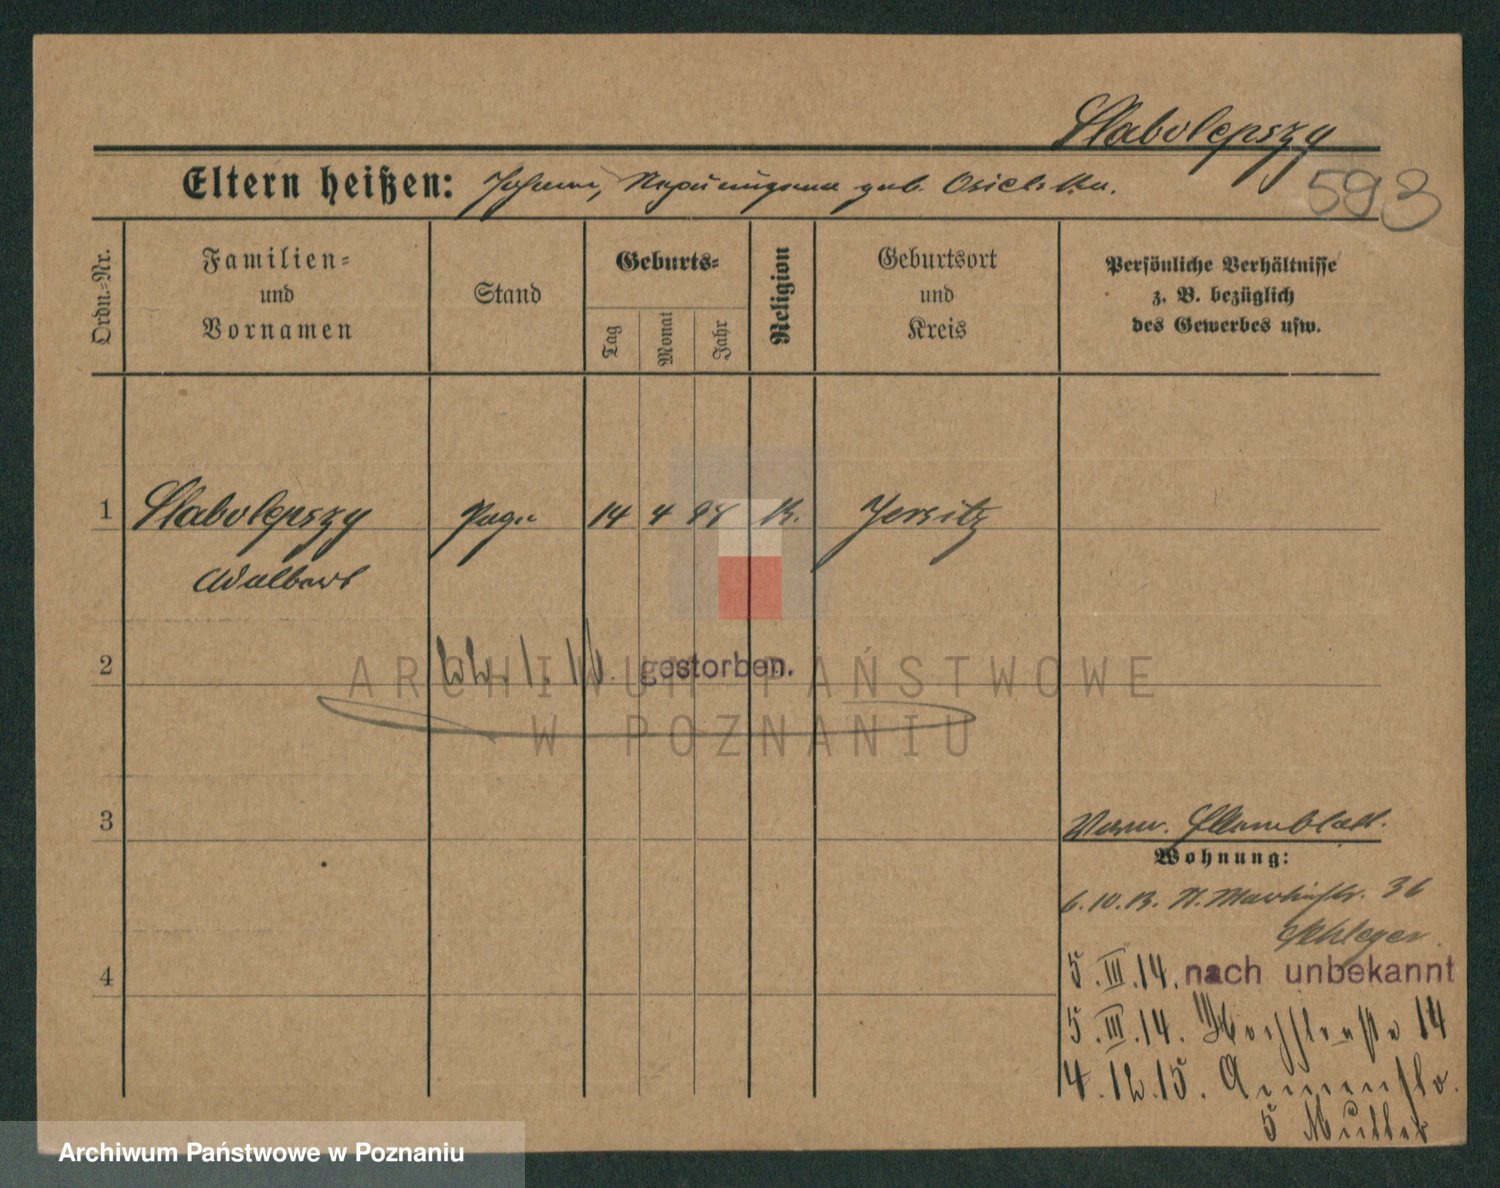 Slabolepszy
Eltern heißen: Johann, geb. Osielska.
593
Ordn.-Nr.
Familien-
und
Vornamen
Stand
Geburts-
Tag
Monat
Jahr
Religion
Geburtsort
und
Kreis
Persönliche Verhältnisse
z. B. bezüglich
des Gewerbes usw.
1 Slabolepszy 14 4 98 K. Jersitz
Adalbert
2 22. 1. 16. gestorben.
ARCHIWUM PAŃSTWOWE
W POZNANIU
3
Wohnung:
6.10.13. N. Martinstr. 36
4
5.III.14. nach unbekannt
5.III.14. 14
4.12.15.
5 Mutter
Archiwum Państwowe w Poznaniu